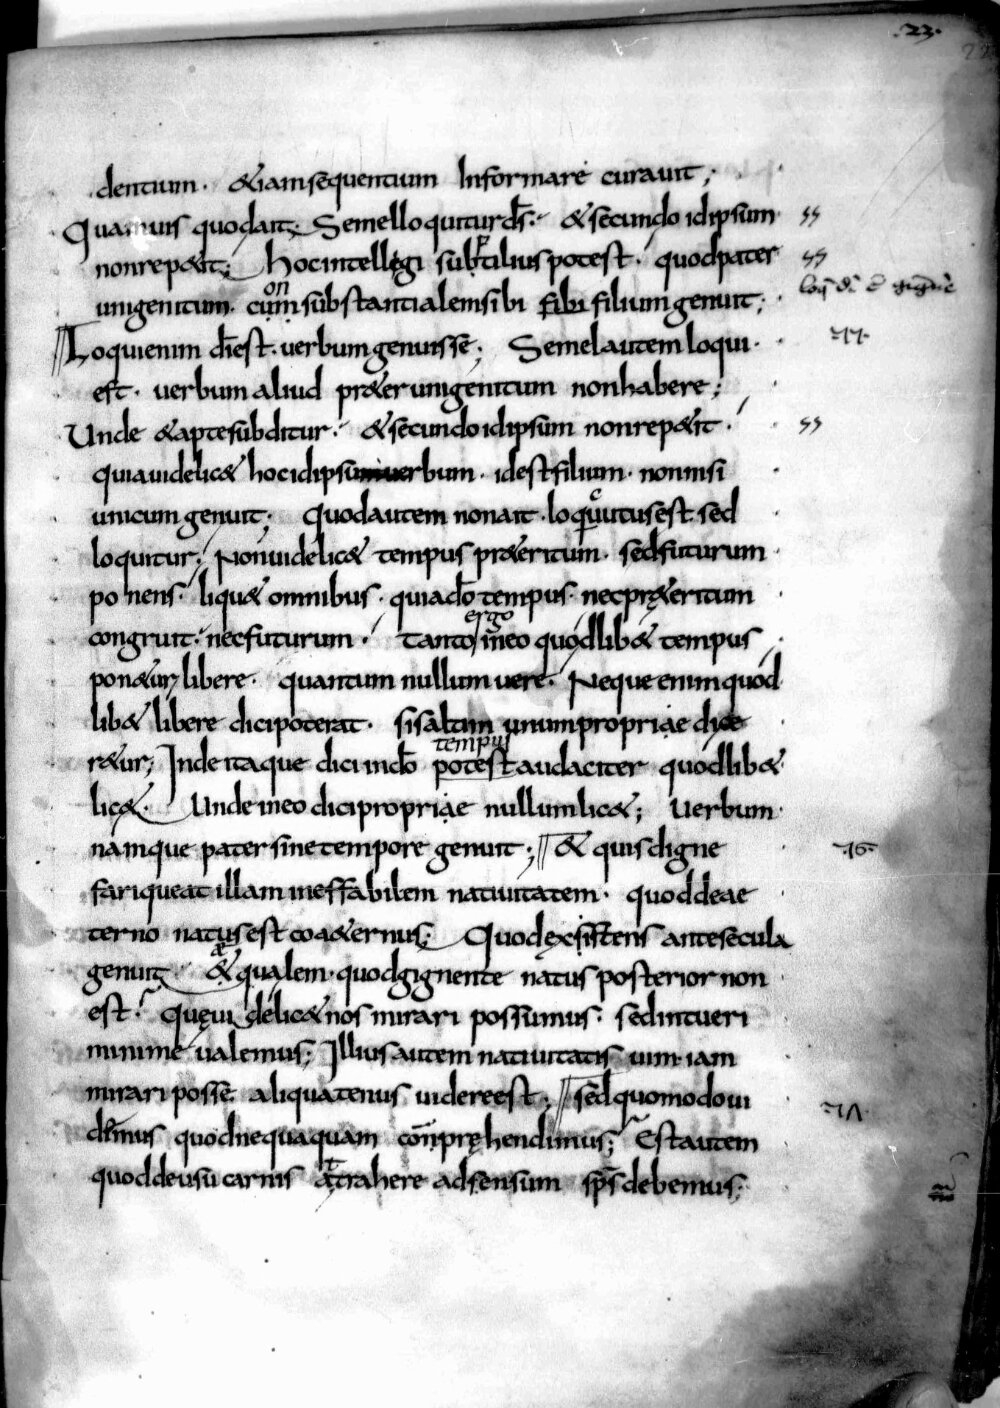 .23.
22
dentium. &iamsequentium Informare curauit;
Quamuis quodait. Semelloquiturds̄. &secundo idipsum
nonrep&it; hocintellegi subtilius potest. quodpater
on
unigenitum. cum substantialemsibi sibi filium genuit;
Loquienim d̄iest. uerbum genuisse; Semel autem loqui.
est. uerbum aliud pr&er unigenitum nonhabere;
Unde &aptesubditur. &secundo idipsum nonrep&it.
quiauidelic& hocidipsum uerbum. idest filium. nonnisi
unicum genuit; Quodautem nonait. loquutusest sed
loquitur; Nonuidelic& tempus pr&eritum. sedfuturum
ponens. liqu& omnibus. quiadō tempus. necpr&eritum
congruit. necfuturum. ergo
Tanto ineo quodlib& tempus
pon&ur libere. quantum nullum uere. Neque enim quod
lib& libere dicipoterat. sisaltim unumpropriae dice
r&ur; Inde itaque dici indō tempus
potest audaciter quodlib&
lic&. Unde ineo dicipropriae nullumlic&; Uerbum
namque pater sinetempore genuit; & quis digne
fariqueat illam ineffabilem natiuitatem. quoddeae
terno natus est coa&ernus. Quodexsistens antesecula
genuit & qualem. quodgignente natus posterior non
est. Quęuidelic&nos mirari possumus. sedintueri
minime ualemus; Illius autem natiuitatis uim iam
mirari posse. aliquatenus uidereest; sedquomodo ui
demus quodnequaquam conpręhendimus; Estautem
quoddeusu carnis attrahere adsensum sp̄s debemus;
.17.
.16.